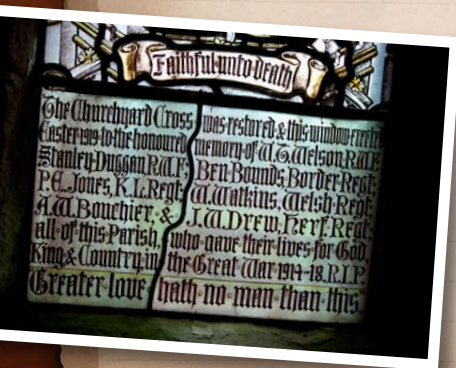 Faithful·unto·death
The Churchyard Cross was·restored·&·this·window·erected
Easter·1919·to·the·honoured memory·of·W.G.Nelson,R.W.F.
Stanley·Duggan,R.W.F. Ben·Bounds,Border·Regt:
P.E.Jones, K.L.Regt: W.Watkins, Welsh·Regt:
A.W.Bouchier, & J.W.Drew, Herf.Regt.
all·of·this·Parish, who·gave·their·lives·for·God,
King·&·Country·in the·Great·War·1914-18.R.I.P.
Greater·love· hath·no·man·than·this.